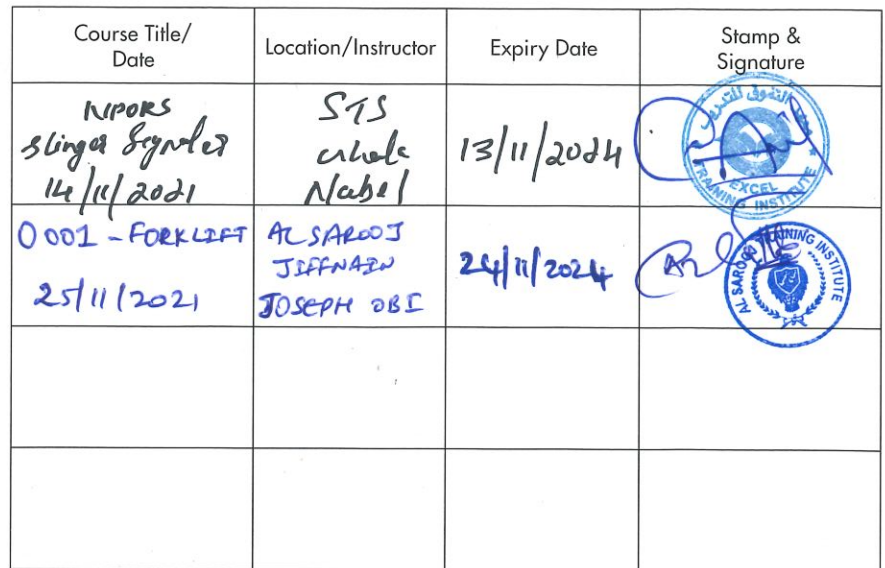 Course Title/
Date
Location/Instructor
Expiry Date
Stamp &
Signature
NPORS
Slinger Signaler
14/11/2021
STS
Nabel
13/11/2024
TRAINING INSTITUTE
EXCEL
0001 - FORKLIFT
25/11/2021
AL SAROOJ
JIFFNAIN
JOSEPH OBI
24/11/2024
AL SAROOJ TRAINING INSTITUTE